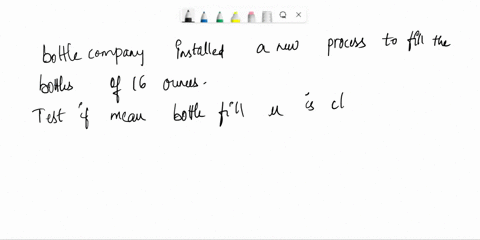 bottle company installed a new process to fill the
bottles of 16 ounces.
Test if mean bottle fill u is cl